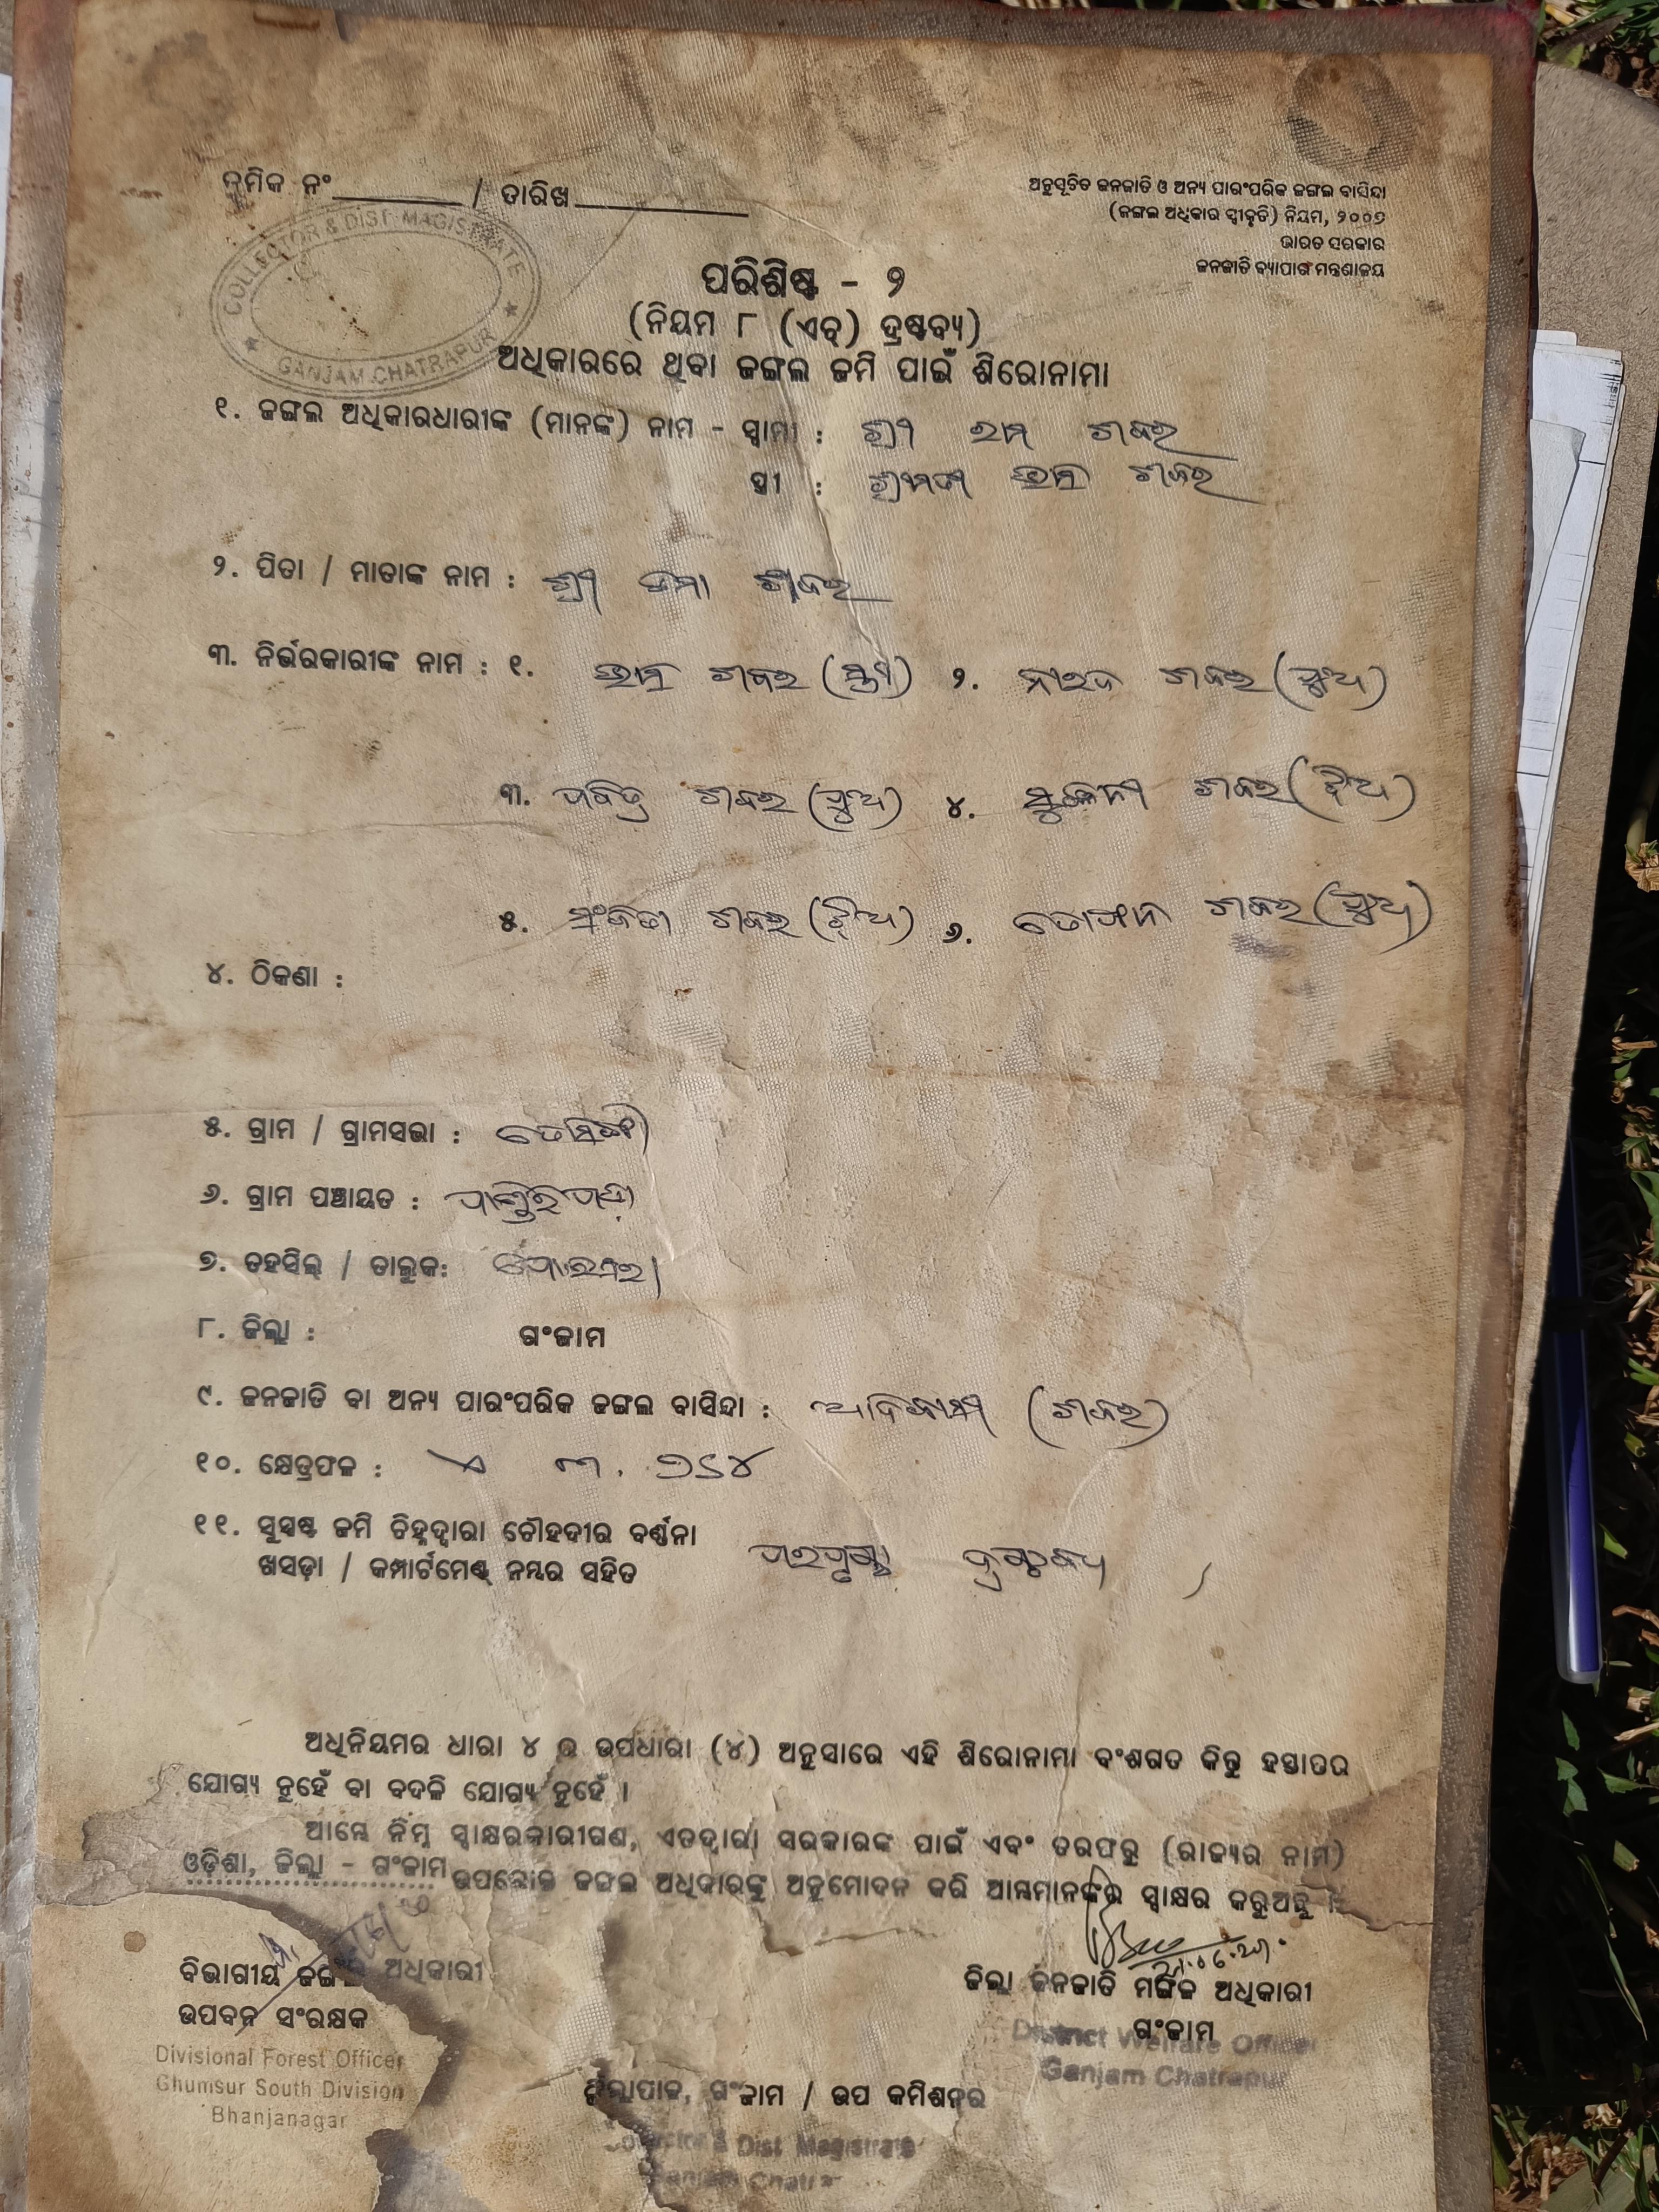 କ୍ରମିକ ନଂ ________ / ତାରିଖ ________
ଅନୁସୂଚିତ ଜନଜାତି ଓ ଅନ୍ୟ ପାରଂପରିକ ଜଙ୍ଗଲ ବାସିନ୍ଦା
(ଜଙ୍ଗଲ ଅଧିକାର ସ୍ୱୀକୃତି) ନିୟମ, ୨୦୦୭
ଭାରତ ସରକାର
ଜନଜାତି ବ୍ୟାପାର ମନ୍ତ୍ରଣାଳୟ
COLLECTOR & DIST. MAGISTRATE
GANJAM, CHATRAPUR
ପରିଶିଷ୍ଟ - ୨
(ନିୟମ ୮ (ଏଚ୍) ଦ୍ରଷ୍ଟବ୍ୟ)
ଅଧିକାରରେ ଥିବା ଜଙ୍ଗଲ ଜମି ପାଇଁ ଶିରୋନାମା
୧. ଜଙ୍ଗଲ ଅଧିକାରଧାରୀଙ୍କ (ମାନଙ୍କ) ନାମ - ସ୍ୱାମୀ : ଶ୍ରୀ ରାମ ଶବର
ସ୍ତ୍ରୀ : ଶ୍ରୀମତୀ ଶବର
୨. ପିତା / ମାତାଙ୍କ ନାମ : ଶ୍ରୀ ଶବର
୩. ନିର୍ଭରକାରୀଙ୍କ ନାମ : ୧. ଶବର (ସ୍ତ୍ରୀ) ୨. ଶବର (ପୁଅ)
୩. ପବିତ୍ର ଶବର (ପୁଅ) ୪. ଶବର (ଝିଅ)
୫. ଶବର (ଝିଅ) ୬. ଶବର (ପୁଅ)
୪. ଠିକଣା :
୫. ଗ୍ରାମ / ଗ୍ରାମସଭା :
୬. ଗ୍ରାମ ପଞ୍ଚାୟତ :
୭. ତହସିଲ୍ / ତାଲୁକ:
୮. ଜିଲ୍ଲା : ଗଂଜାମ
୯. ଜନଜାତି ବା ଅନ୍ୟ ପାରଂପରିକ ଜଙ୍ଗଲ ବାସିନ୍ଦା : ଆଦିବାସୀ (ଶବର)
୧୦. କ୍ଷେତ୍ରଫଳ :
୧୧. ସୁସ୍ପଷ୍ଟ ଜମି ଚିହ୍ନଦ୍ୱାରା ଚୌହଦୀର ବର୍ଣ୍ଣନା
ଖସଡ଼ା / କମ୍ପାର୍ଟମେଣ୍ଟ୍ ନମ୍ବର ସହିତ ପରପୃଷ୍ଠା ଦ୍ରଷ୍ଟବ୍ୟ
ଅଧିନିୟମର ଧାରା ୪ ର ଉପଧାରା (୪) ଅନୁସାରେ ଏହି ଶିରୋନାମା ବଂଶଗତ କିନ୍ତୁ ହସ୍ତାନ୍ତର
ଯୋଗ୍ୟ ନୁହେଁ ବା ବଦଳି ଯୋଗ୍ୟ ନୁହେଁ ।
ଆମ୍ଭେ ନିମ୍ନ ସ୍ୱାକ୍ଷରକାରୀଗଣ, ଏତଦ୍ୱାରା ସରକାରଙ୍କ ପାଇଁ ଏବଂ ତରଫରୁ (ରାଜ୍ୟର ନାମ)
ଓଡ଼ିଶା, ଜିଲ୍ଲା - ଗଂଜାମ ଉପରୋକ୍ତ ଜଙ୍ଗଲ ଅଧିକାରଙ୍କୁ ଅନୁମୋଦନ କରି ଆମ୍ଭମାନଙ୍କର ସ୍ୱାକ୍ଷର କରୁଅଛୁ ।
ବିଭାଗୀୟ ଜଙ୍ଗଲ ଅଧିକାରୀ
ଉପବନ ସଂରକ୍ଷକ
Divisional Forest Officer
Ghumsur South Division
Bhanjanagar
ଜିଲ୍ଲା ଜନଜାତି ମଙ୍ଗଳ ଅଧିକାରୀ
ଗଂଜାମ
District Welfare Officer
Ganjam Chatrapur
ଜିଲ୍ଲାପାଳ, ଗଂଜାମ / ଉପ କମିଶନର
Collector & Dist. Magistrate